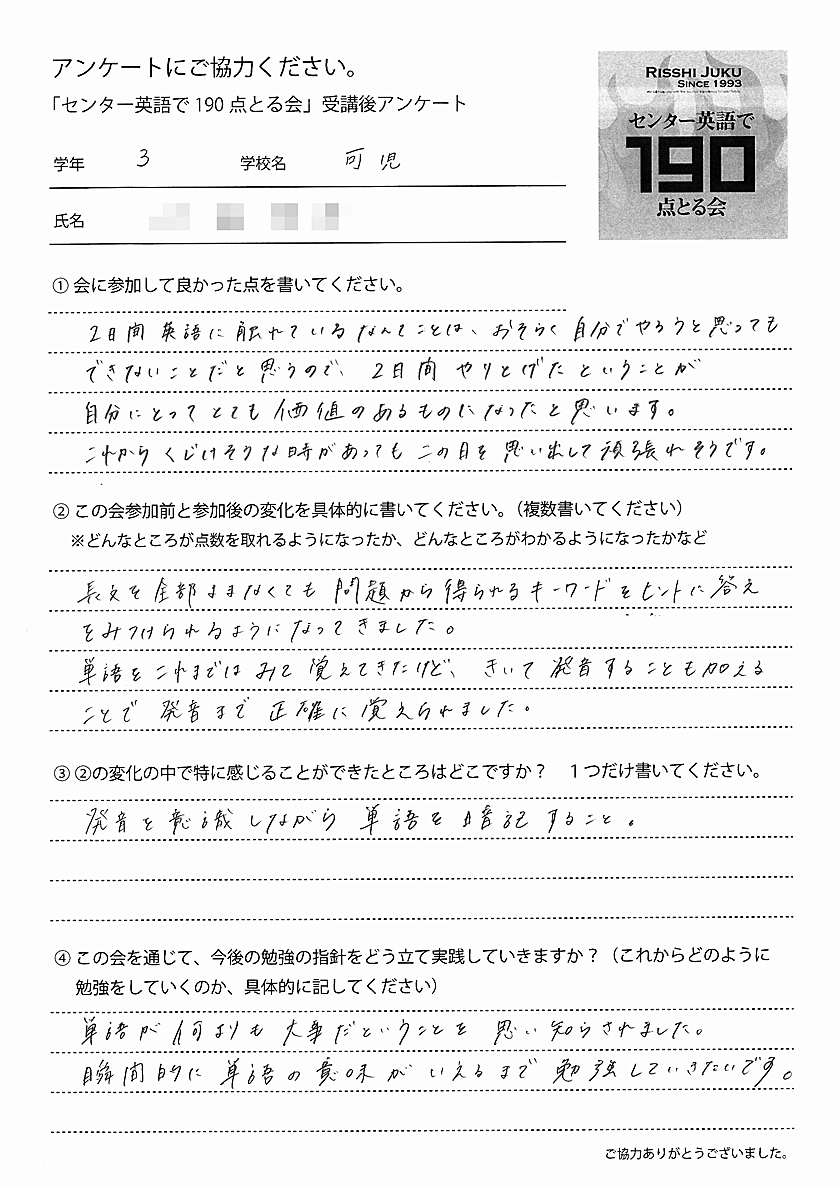 アンケートにご協力ください。
「センター英語で190点とる会」受講後アンケート
RISSHI JUKU
SINCE 1993
センター英語で
190
点とる会
学年 3 学校名 可児
氏名
① 会に参加して良かった点を書いてください。
2日間英語に触れているなんてことは、おそらく自分でやろうと思っても
できないことだと思うので、2日間やりとげたということが
自分にとってとても価値のあるものになったと思います。
これからくじけそうな時があってもこの日を思い出して頑張れそうです。
② この会参加前と参加後の変化を具体的に書いてください。（複数書いてください）
※どんなところが点数を取れるようになったか、どんなところがわかるようになったかなど
長文を全部よまなくても問題から得られるキーワードをヒントに答え
をみつけられるようになってきました。
単語をこれまではみて覚えてきたけど、きいて発音することも加える
ことで発音まで正確に覚えられました。
③ ②の変化の中で特に感じることができたところはどこですか？ 1つだけ書いてください。
発音を意識しながら単語を暗記すること。
④ この会を通じて、今後の勉強の指針をどう立て実践していきますか？（これからどのように
勉強をしていくのか、具体的に記してください）
単語が何よりも大事だということを思い知らされました。
瞬間的に単語の意味がいえるまで勉強していきたいです。
ご協力ありがとうございました。